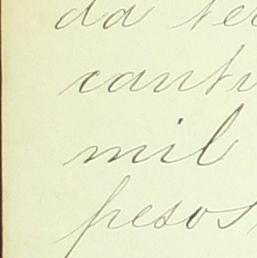 da ter
canti
mil
pesos